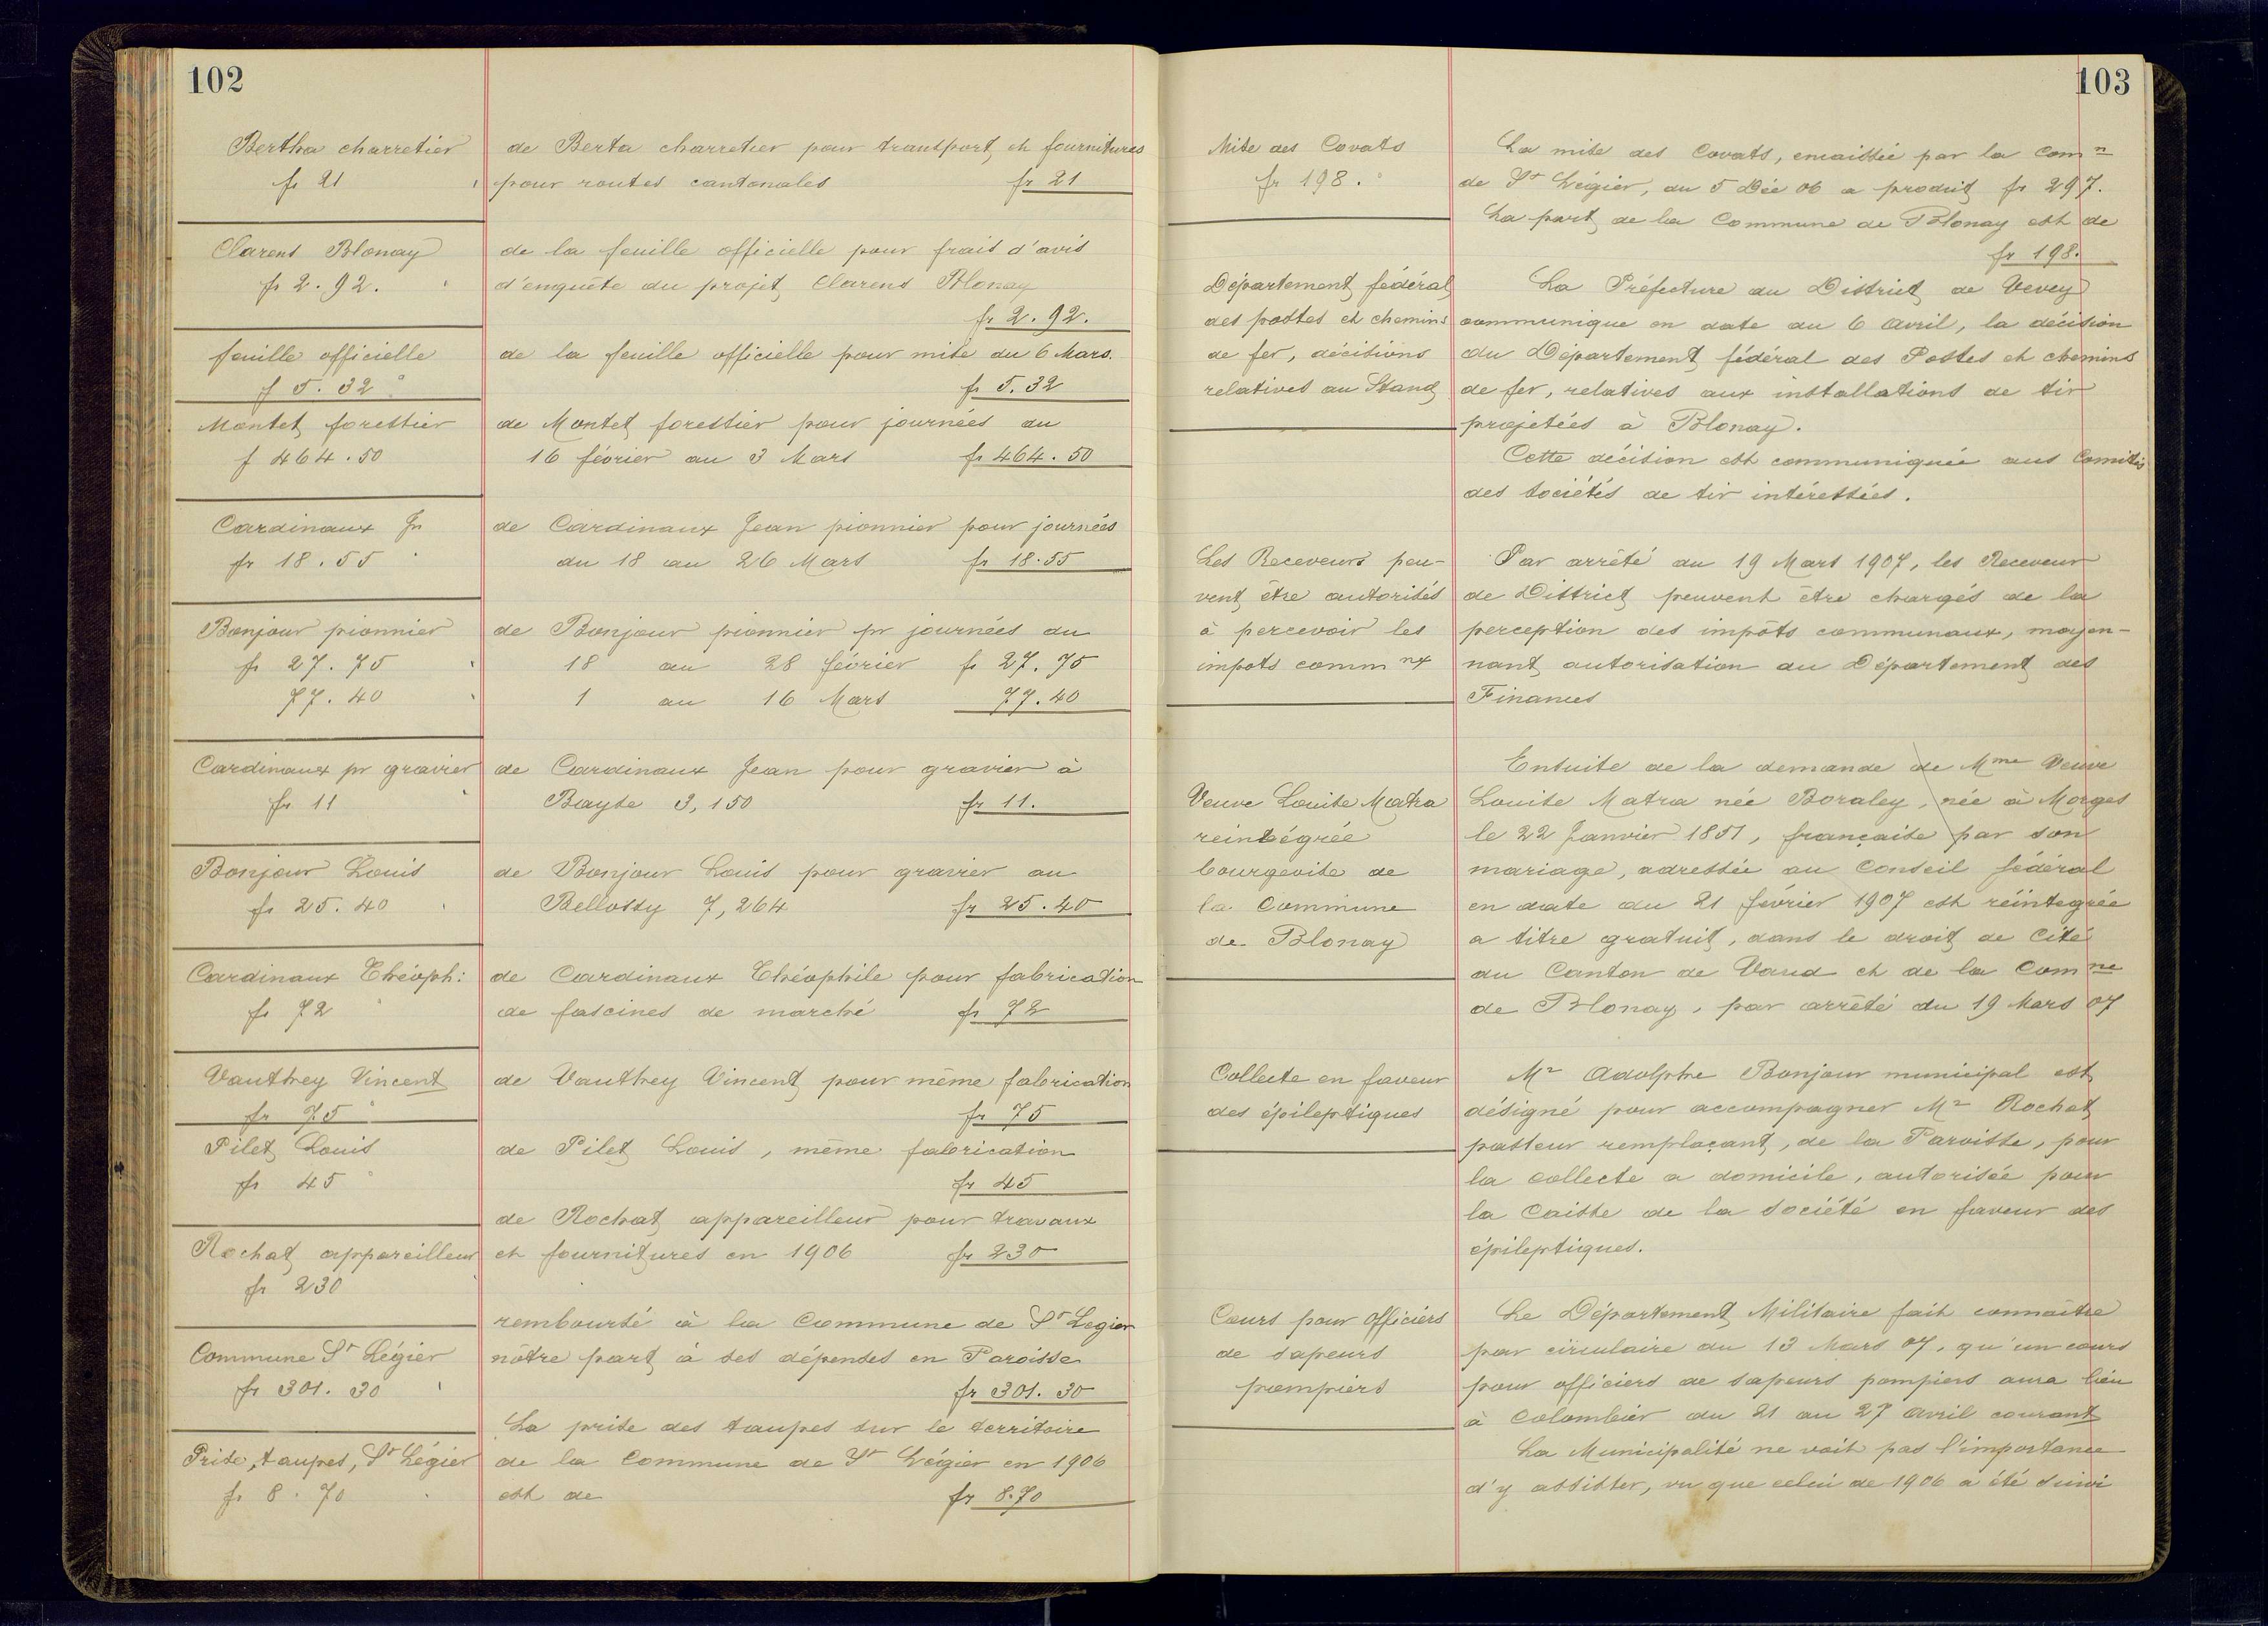 102
Bertha charretier
fr 21
de Berta charretier pour transport et fournitures
pour routes cantonales fr 21
Clarens Blonay
fr 2.92.
de la feuille officielle pour frais d'avis
d'enquête du projet Clarens Blonay
fr 2.92.
feuille officielle
f 5.32
de la feuille officielle pour mise du 6 Mars.
fr 5.32
Montet forestier
f 464.50
de Montet forestier pour journées du
16 février au 3 Mars fr 464.50
Cardinaux Jn
fr 18.55
de Cardinaux Jean pionnier pour journées
du 18 au 26 Mars fr 18.55
Bonjour pionnier
fr 27.75
77.40
de Bonjour pionnier pr journées du
18 au 28 février fr 27.75
1 au 16 Mars 77.40
Cardinaux pr gravier
fr 11
de Cardinaux Jean pour gravier à
Bayse 3,150 fr 11.
Bonjour Louis
fr 25.40
de Bonjour Louis pour gravier au
Bellossy 7,264 fr 25.40
Cardinaux Théoph:
fr 72
de Cardinaux Théophile pour fabrication
de fascines de marché fr 72
Vauthey Vincent
fr 75
de Vauthey Vincent pour même fabrication
fr 75
Pilet Louis
fr 45
de Pilet Louis, même fabrication
fr 45
Rochat appareilleur
fr 230
de Rochat appareilleur pour travaux
et fournitures en 1906 fr 230
Commune St Légier
fr 301.30
remboursé à la Commune de St Legier
nôtre part à ses dépenses en Paroisse
fr 301.30
Prise, taupes, St Légier
fr 8.70
La prise des taupes sur le territoire
de la Commune de St Légier en 1906
est de fr 8.70
103
Mise des Covats
fr 198.
La mise des Covats, encaissée par la Comn
de St Légier, du 5 Déc 06 a produit fr 297.
La part de la Commune de Blonay est de
fr 198.
Département fédéral
des postes et chemins
de fer, décisions
relatives au Stand
La Préfecture du District de Vevey
communique en date du 6 Avril, la décision
du Département fédéral des Postes et chemins
de fer, relatives aux installations de tir
projetées à Blonay.
Cette décision est communiquée aus Comités
des sociétés de tir intéressées.
Les Receveurs peu-
vent être autorisés
à percevoir les
impots commnx
Par arrêté du 19 Mars 1907, les Receveur
de District peuvent etre chargés de la
perception des impôts communaux, moyen-
nant autorisation du Département des
Finances
Veuve Louise Matra
reintégrée
bourgeoise de
la Commune
de Blonay
Ensuite de la demande de Mme Veuve
Louise Matra née Boraley, née à Morges
le 22 Janvier 1851, française par son
mariage, adressée au Conseil fédéral
en date du 21 février 1907 est réintegrée
a titre gratuit, dans le droit de Cité
du Canton de Vaud et de la Comne
de Blonay, par arrêté du 19 Mars 07
Collecte en faveur
des épileptiques
Mr Adolphe Bonjour municipal est
désigné pour accompagner Mr Rochat
pasteur remplaçant, de la Paroisse, pour
la collecte a domicile, autorisée pour
la Caisse de la société en faveur des
épileptiques.
Cours pour Officiers
de sapeurs
pompiers
Le Département Militaire fait connaître
par circulaire du 13 Mars 07, qu'un cours
pour officiers de sapeurs pompiers aura lieu
à Colombier du 21 au 27 Avril courant
La Municipalité ne voit pas l'importance
d'y assister, vu que celui de 1906 a été suivi